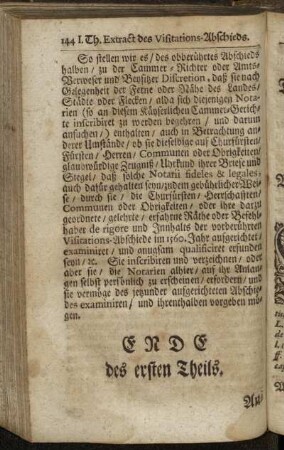 144 I. Th. Extract des Visitations-Abschieds.
So stellen wir es/ des obberührten Abschieds
halben/ zu der Cammer-Richter oder Amts-
Verweser und Beysitzer Discretion, daß sie nach
Gelegenheit der Ferne oder Nähe des Landes/
Städte oder Flecken/ alda sich diejenigen Nota-
rien (so an diesem Käyserlichen Cammer-Gerich-
te inscribiret zu werden begehren/ und darum
ansuchen/) enthalten/ auch in Betrachtung an-
derer Umstände/ ob sie dieselbige auf Churfürsten/
Fürsten/ Herren/ Communen oder Obrigkeiten/
glaubwürdige Zeugnüs/ Uhrkund ihrer Briefe und
Siegel/ daß solche Notarii fideles & legales,
auch dafür gehalten seyn/ zudem gebührlicher Wei-
se/ durch sie/ die Churfürsten/ Herrschafften/
Communen oder Obrigkeiten/ oder ihre darzu
geordnete/ gelehrte/ erfahrne Räthe oder Befehl-
haber de rigore und Innhalts der vorberührten
Visitations-Abschiede im 1560. Jahr aufgerichtet/
examiniret/ und gnugsam qualificiret erfunden
seyn/ ꝛc. Sie inscribiren und verzeichnen/ oder
aber sie/ die Notarien alhier/ auf ihr Anlan-
gen selbst persönlich zu erscheinen/ erfordern/ und
sie vermöge des jetzunder aufgerichteten Abschie-
des examiniren/ und ihrenthalben vorgeben mö-
gen.
ENDE
des ersten Theils.